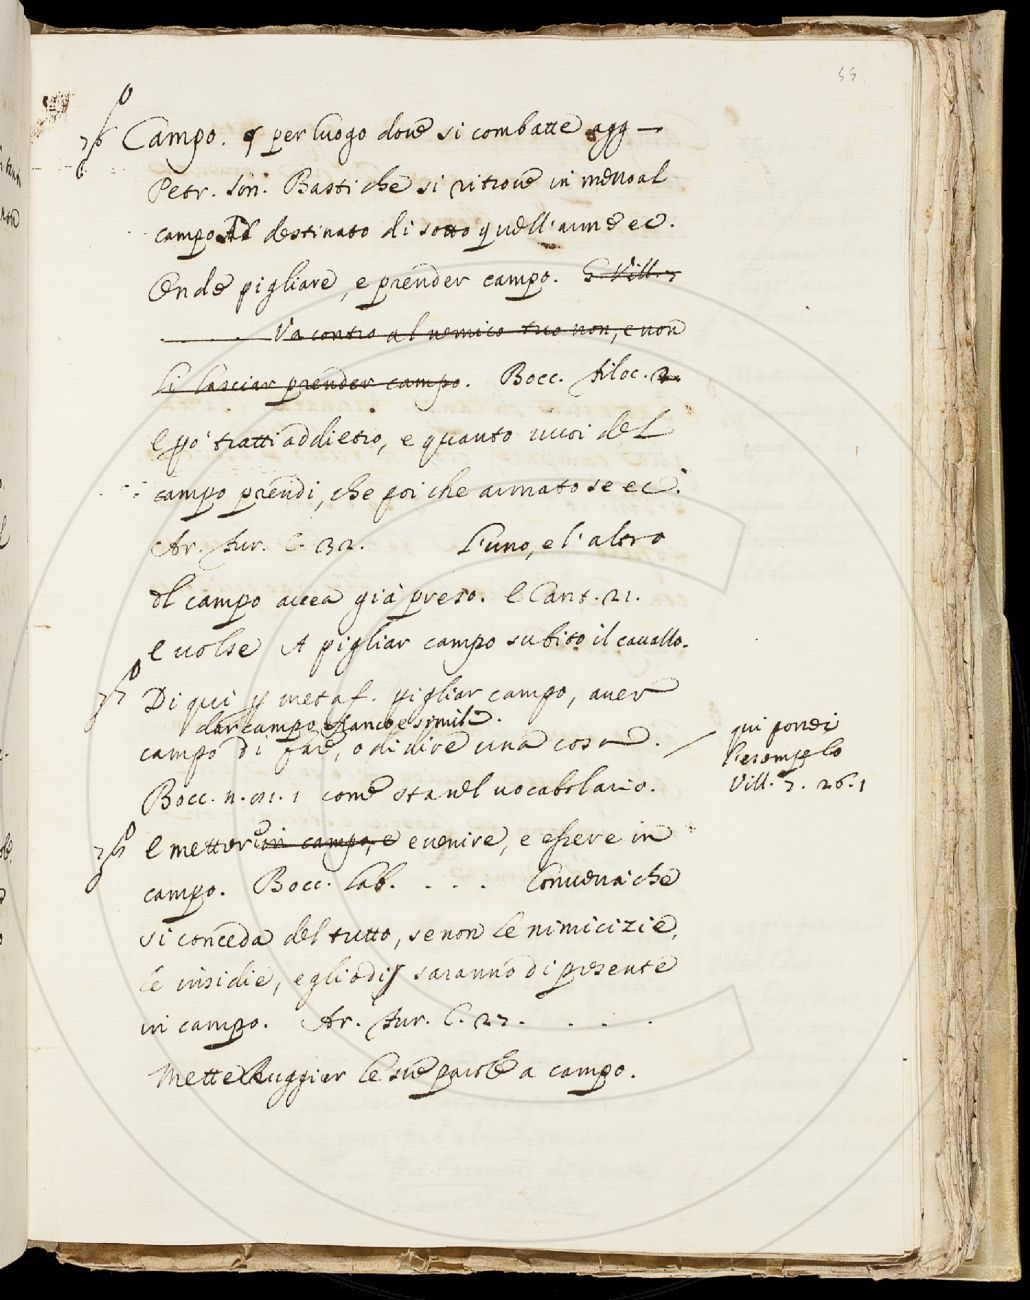 55
Campo. § per luogo dove si combatte agg —
Petr. son. Basti che si ritrove in mezzo al
campo Al destinato dì sotto quell'arme ec.
Onde pigliare, e prender campo. G. Vill. 7
Va contro al nemico tuo non, e non
li lasciar prender campo. Bocc. filoc. 2.
e poi tratti addietro, e quanto vuoi del
campo prendi, che poi che armato se ec.
Ar. fur. C. 32. L'uno, e l'altro
del campo avea già preso. e Cant. 21.
e volse A pigliar campo subito il cavallo.
Di qui p metaf. pigliar campo, aver
dar campo, franco e simili.
campo di fare, o di dire una cosa.
qui poni
l'esempio
Vill. 7. 26. 1
Bocc. n. 91. 1 come sta nel vocabolario.
e mettere in campo, e e venire, e essere in
campo. Bocc. lab. . . . Converrà che
si conceda del tutto, se non le nimicizie,
le insidie, e gli odij saranno di presente
in campo. Ar. fur. C. 27. . . .
Mette Ruggier le sue parole a campo.